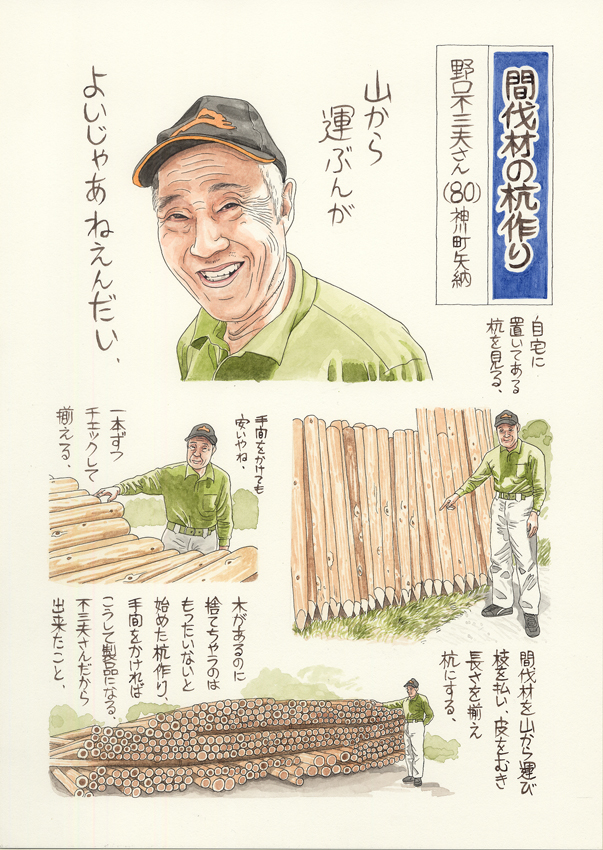 間伐材の杭作り
野口不三夫さん(80)神川町矢納
山から
運ぶんが
よいじゃあねえんだい、
自宅に
置いてある
杭を見る、
手間をかけても
安いやね、
一本ずつ
チェックして
揃える、
間伐材を山から運び
枝を払い、皮をむき
長さを揃え
杭にする、
木があるのに
捨てちゃうのは
もったいないと
始めた杭作り、
手間をかければ
こうして製品になる、
不三夫さんだから
出来たこと、